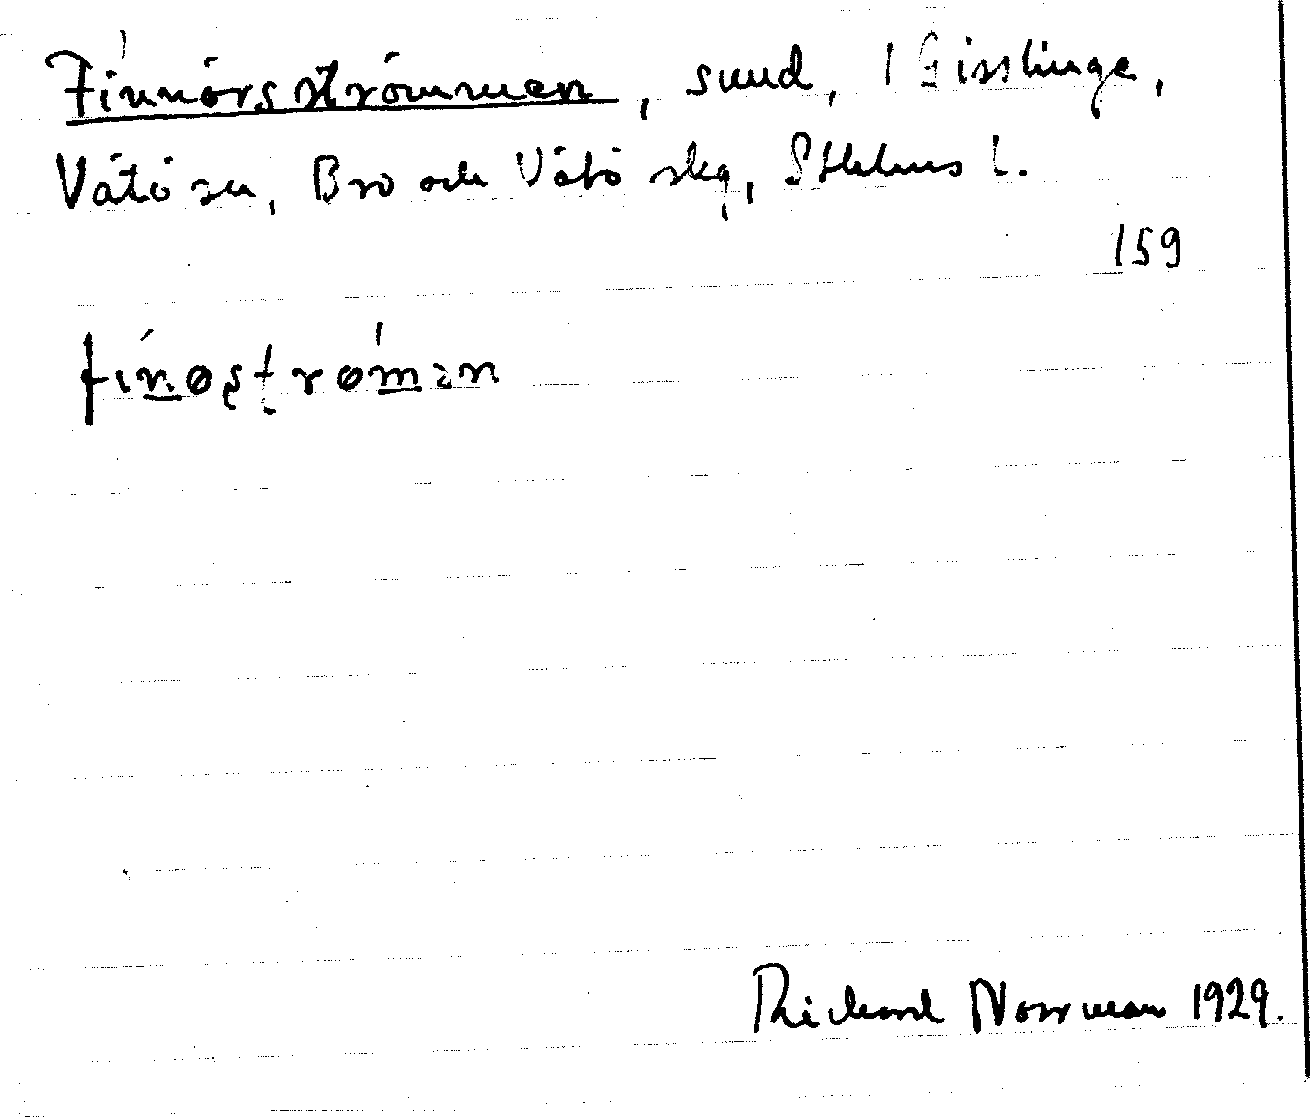 Finnörsströmmen, sund, 1 Gisslinge,
Vätö sn, Bro och Vätö skg, Sthlms l.
159
finøstrømən
Richard Norrman 1929.